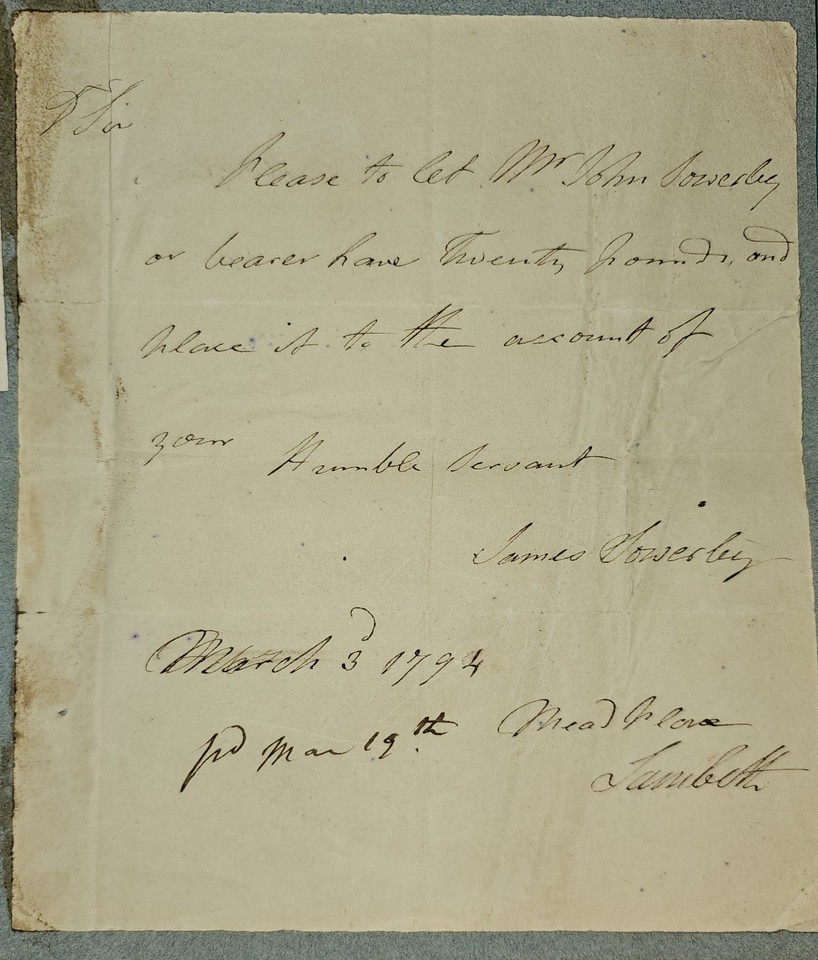 Dr Sir
Please to let Mr John Sowerby
or bearer have Twenty pounds, and
place it to the account of
your Humble Servant
James Sowerby
March 3d 1794
pd Mar 19th Mead Place
Lambeth